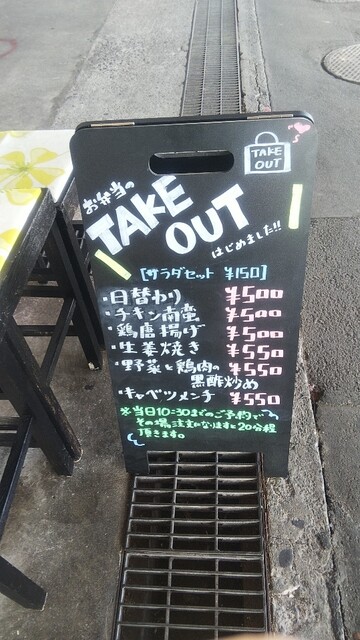 TAKE
OUT
お弁当の
TAKE
OUT
はじめました!!
[サラダセット ¥150]
・日替わり ¥500
・チキン南蛮 ¥500
・鶏唐揚げ ¥500
・生姜焼き ¥550
・野菜と鶏肉の ¥550
黒酢炒め
・キャベツメンチ ¥550
※当日10:30までのご予約で
その場ご注文になりますと20分程
頂きます。